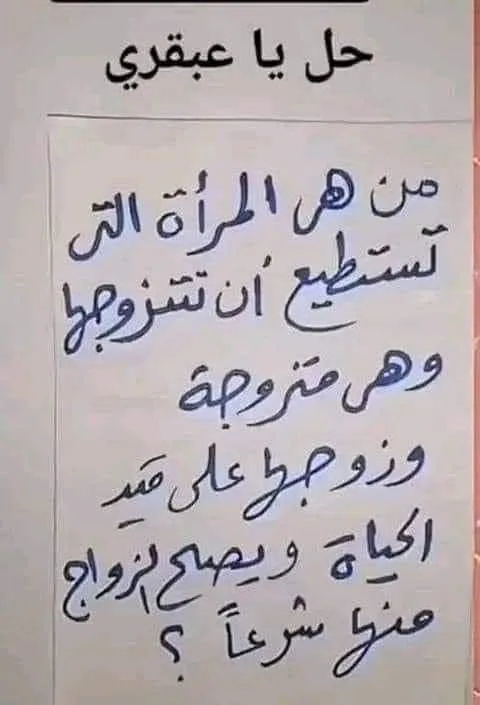 حل يا عبقري
من هي المرأة التي
تستطيع أن تتزوجها
وهي متزوجة
وزوجها على قيد
الحياة ويصح الزواج
منها شرعاً ؟